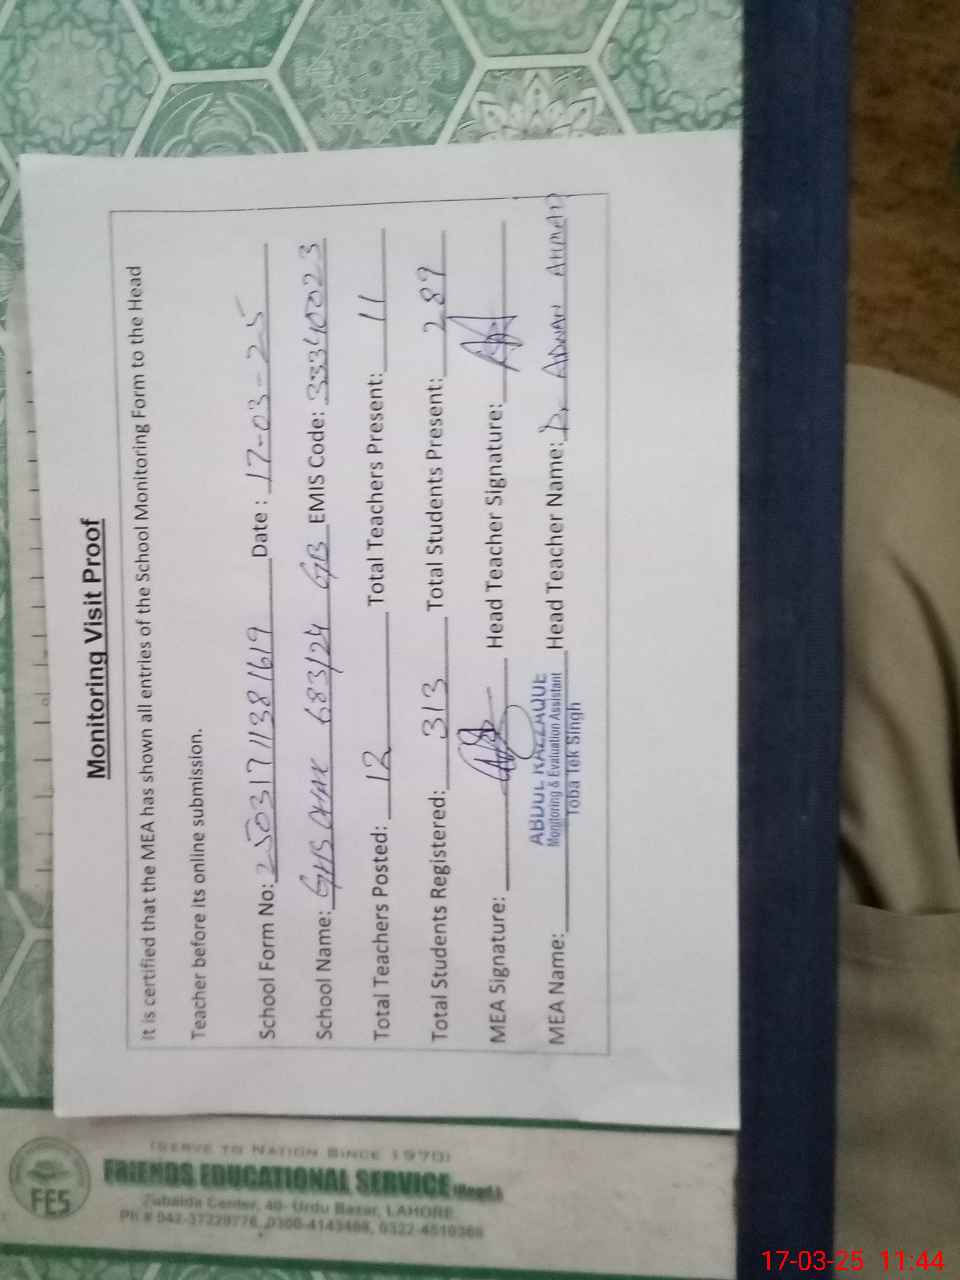 Monitoring Visit Proof
It is certified that the MEA has shown all entries of the School Monitoring Form to the Head
Teacher before its online submission.
School Form No: 25031711381619 Date : 17-03-25
School Name: 683/24 GB EMIS Code: 33340023
Total Teachers Posted: 12 Total Teachers Present: 11
Total Students Registered: 313 Total Students Present: 289
MEA Signature: Head Teacher Signature:
ABDUL RAZZAQUE
Monitoring & Evaluation Assistant
Toba Tek Singh
MEA Name: Head Teacher Name: Dr ADNAN AHMAD
FES
(SERVE TO NATION SINCE 1970)
FRIENDS EDUCATIONAL SERVICE (Regd.)
Zubaida Center, 40- Urdu Bazar, LAHORE
Ph # 042-37229776,
17-03-25 11:44